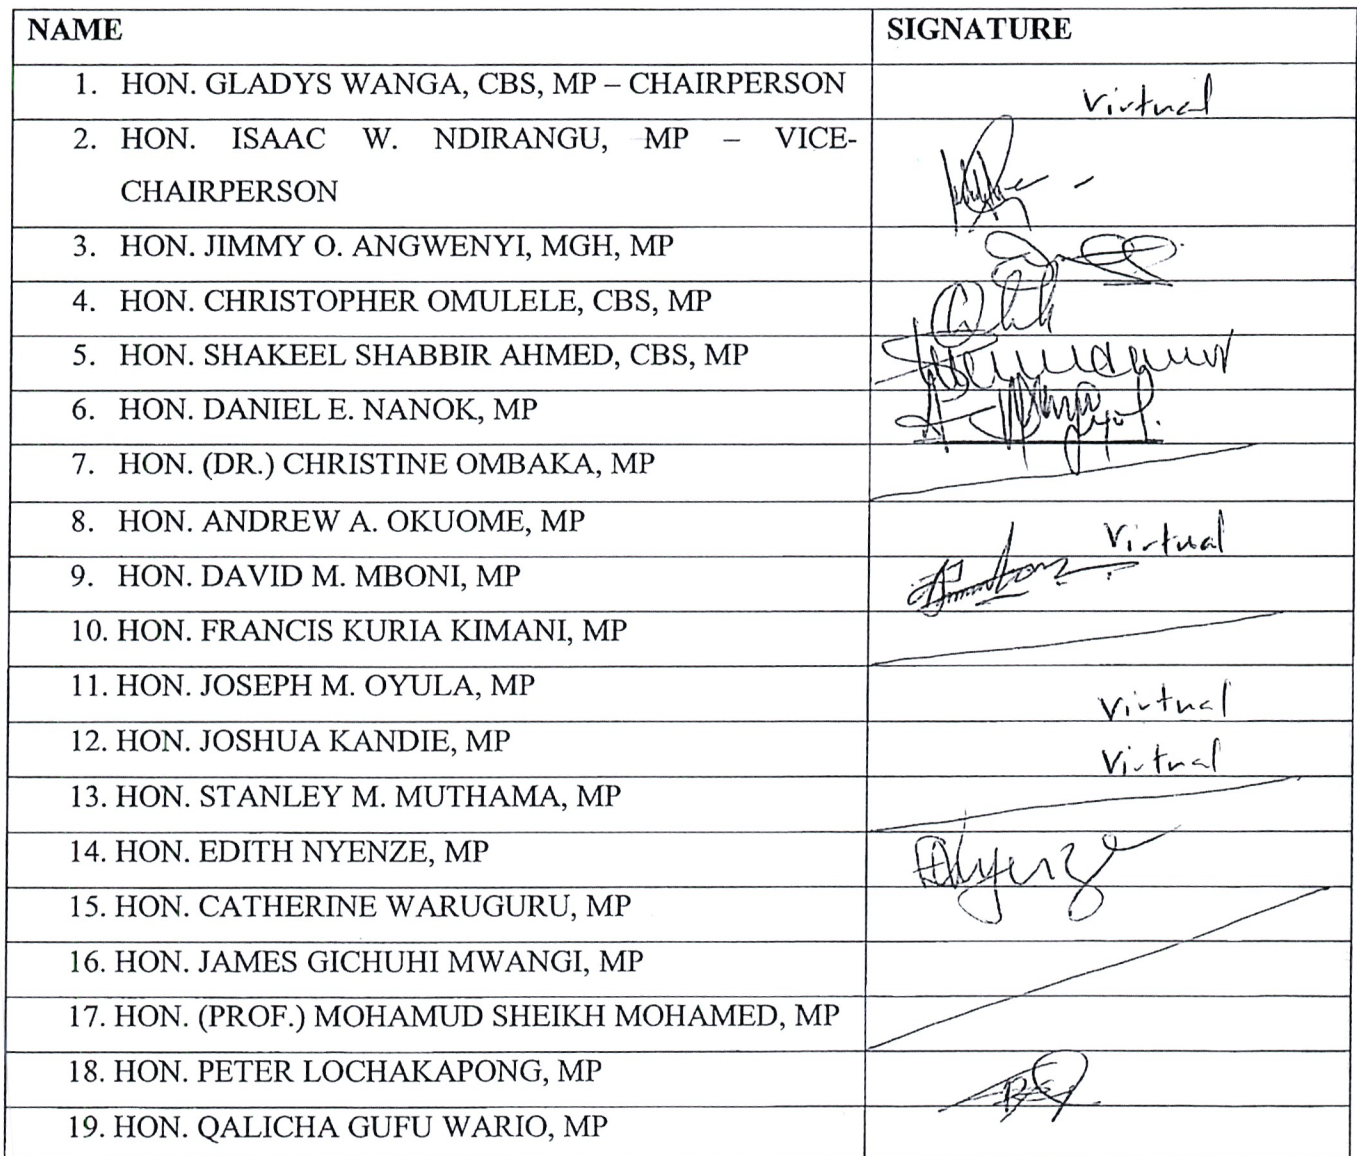 NAME SIGNATURE
1. HON. GLADYS WANGA, CBS, MP – CHAIRPERSON Virtual
2. HON. ISAAC W. NDIRANGU, MP – VICE-
CHAIRPERSON
3. HON. JIMMY O. ANGWENYI, MGH, MP
4. HON. CHRISTOPHER OMULELE, CBS, MP
5. HON. SHAKEEL SHABBIR AHMED, CBS, MP
6. HON. DANIEL E. NANOK, MP
7. HON. (DR.) CHRISTINE OMBAKA, MP
8. HON. ANDREW A. OKUOME, MP Virtual
9. HON. DAVID M. MBONI, MP
10. HON. FRANCIS KURIA KIMANI, MP
11. HON. JOSEPH M. OYULA, MP Virtual
12. HON. JOSHUA KANDIE, MP Virtual
13. HON. STANLEY M. MUTHAMA, MP
14. HON. EDITH NYENZE, MP
15. HON. CATHERINE WARUGURU, MP
16. HON. JAMES GICHUHI MWANGI, MP
17. HON. (PROF.) MOHAMUD SHEIKH MOHAMED, MP
18. HON. PETER LOCHAKAPONG, MP
19. HON. QALICHA GUFU WARIO, MP